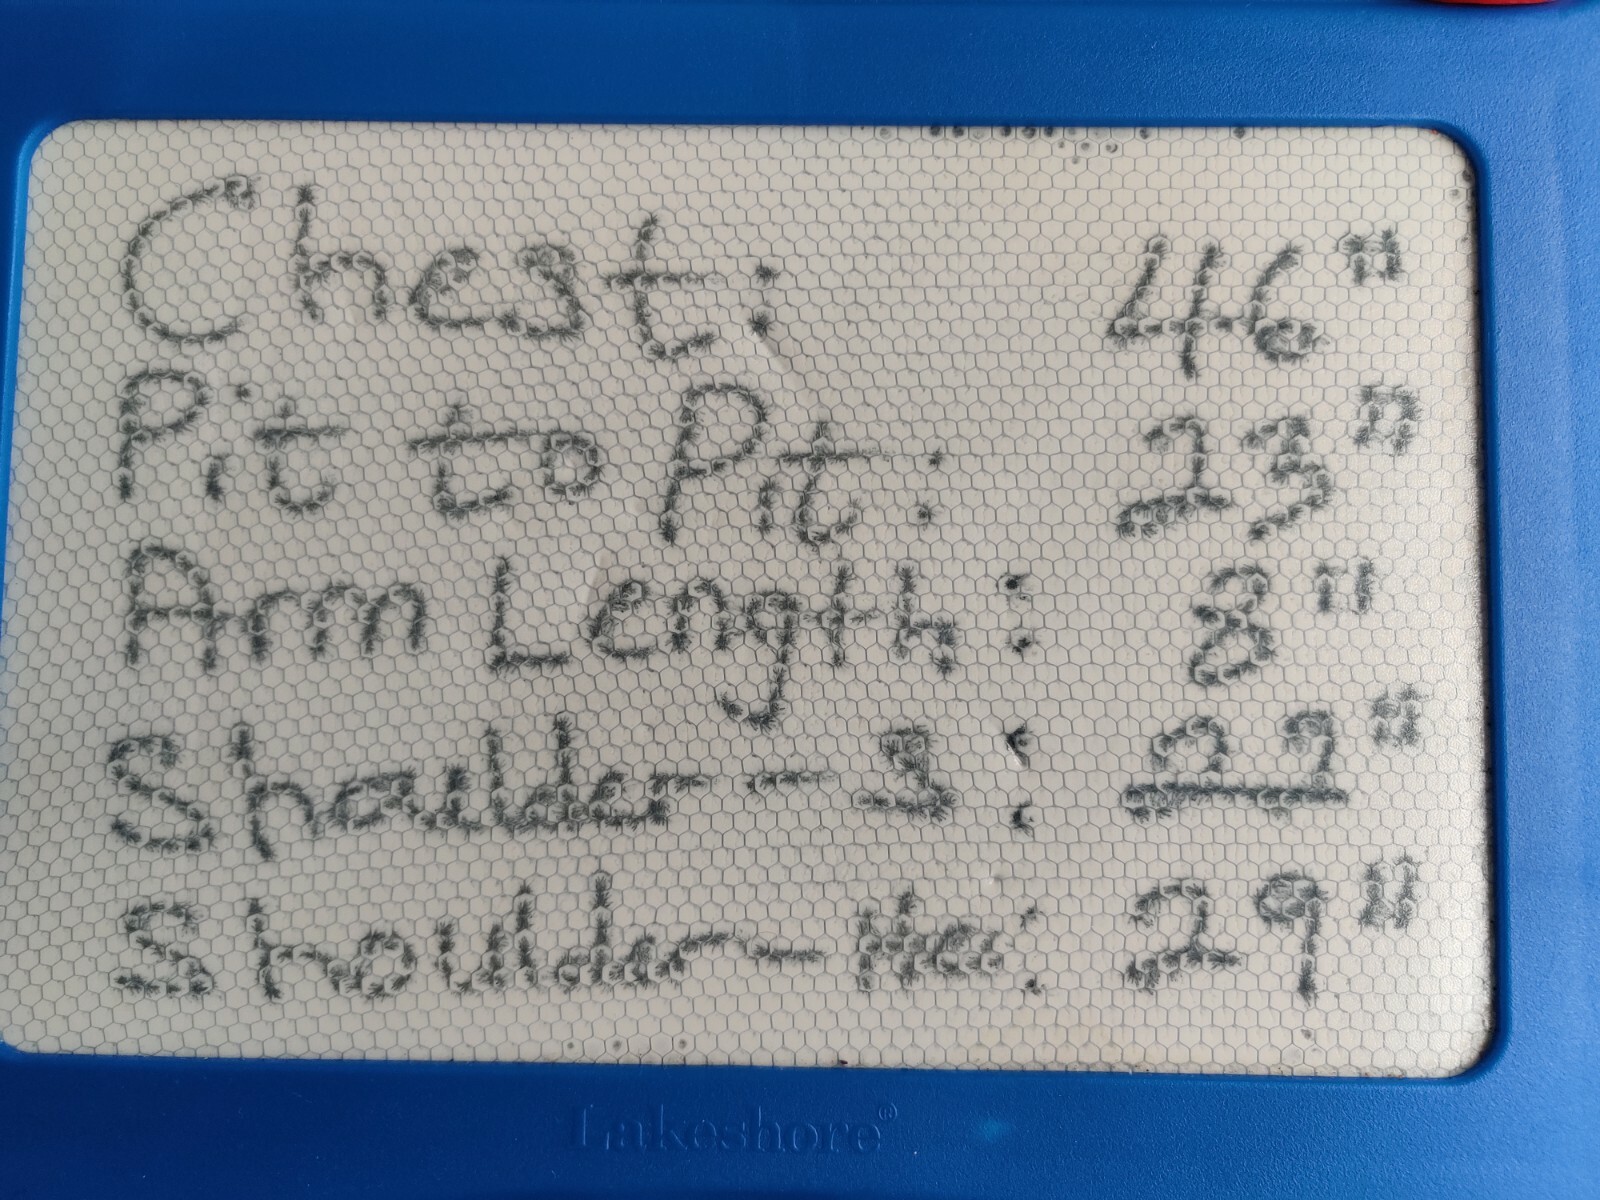 Chest: 46"
Pit to Pit: 23"
Arm Length: 8"
Shoulder - S: 22"
Shoulder - Hem: 29"
Lakeshore®